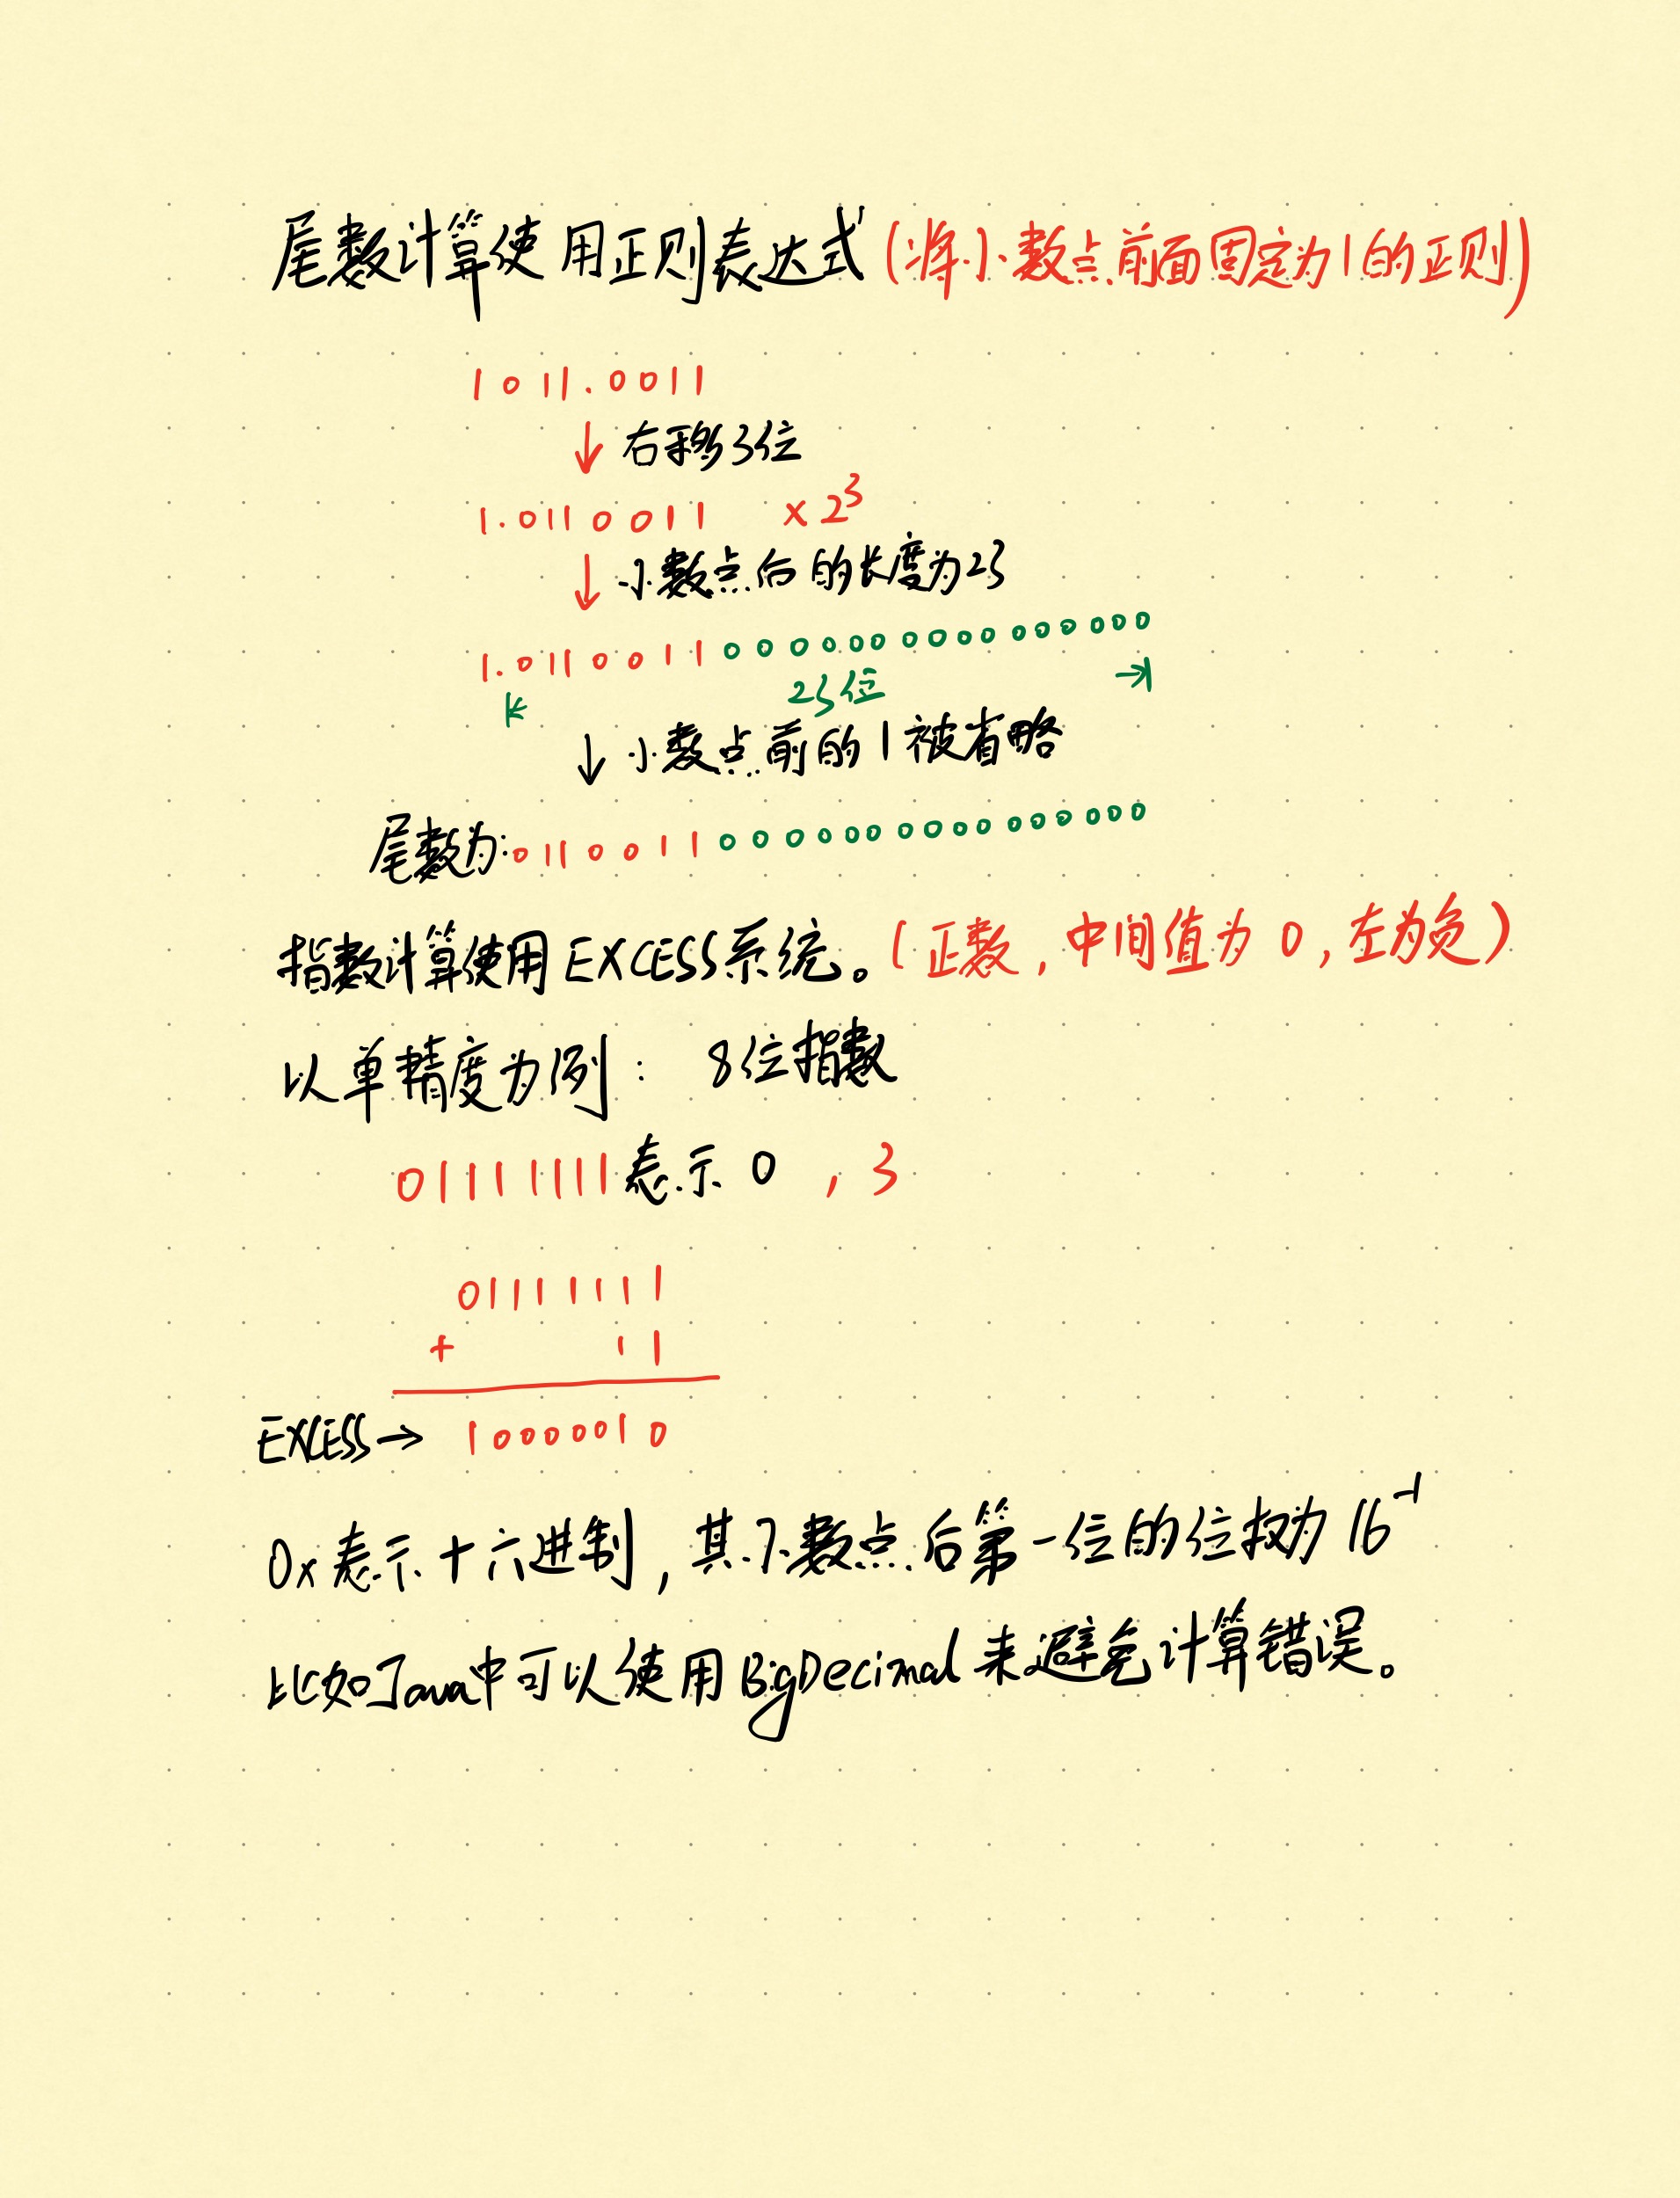 尾数计算使用正则表达式(将小数点前面固定为1的正则)
1011.0011
↓ 右移3位
1.0110011 ×2³
↓ 小数点后的长度为23
1.01100110000000000000000
23位
↓ 小数点前的1被省略
尾数为:01100110000000000000000
指数计算使用EXCESS系统。(正数,中间值为0,左为负)
以单精度为例: 8位指数
01111111表示0 ,3
01111111
+ 11
EXCESS→ 10000010
0x表示十六进制,其小数点后第一位的位权为16⁻¹
比如Java中可以使用BigDecimal来避免计算错误。